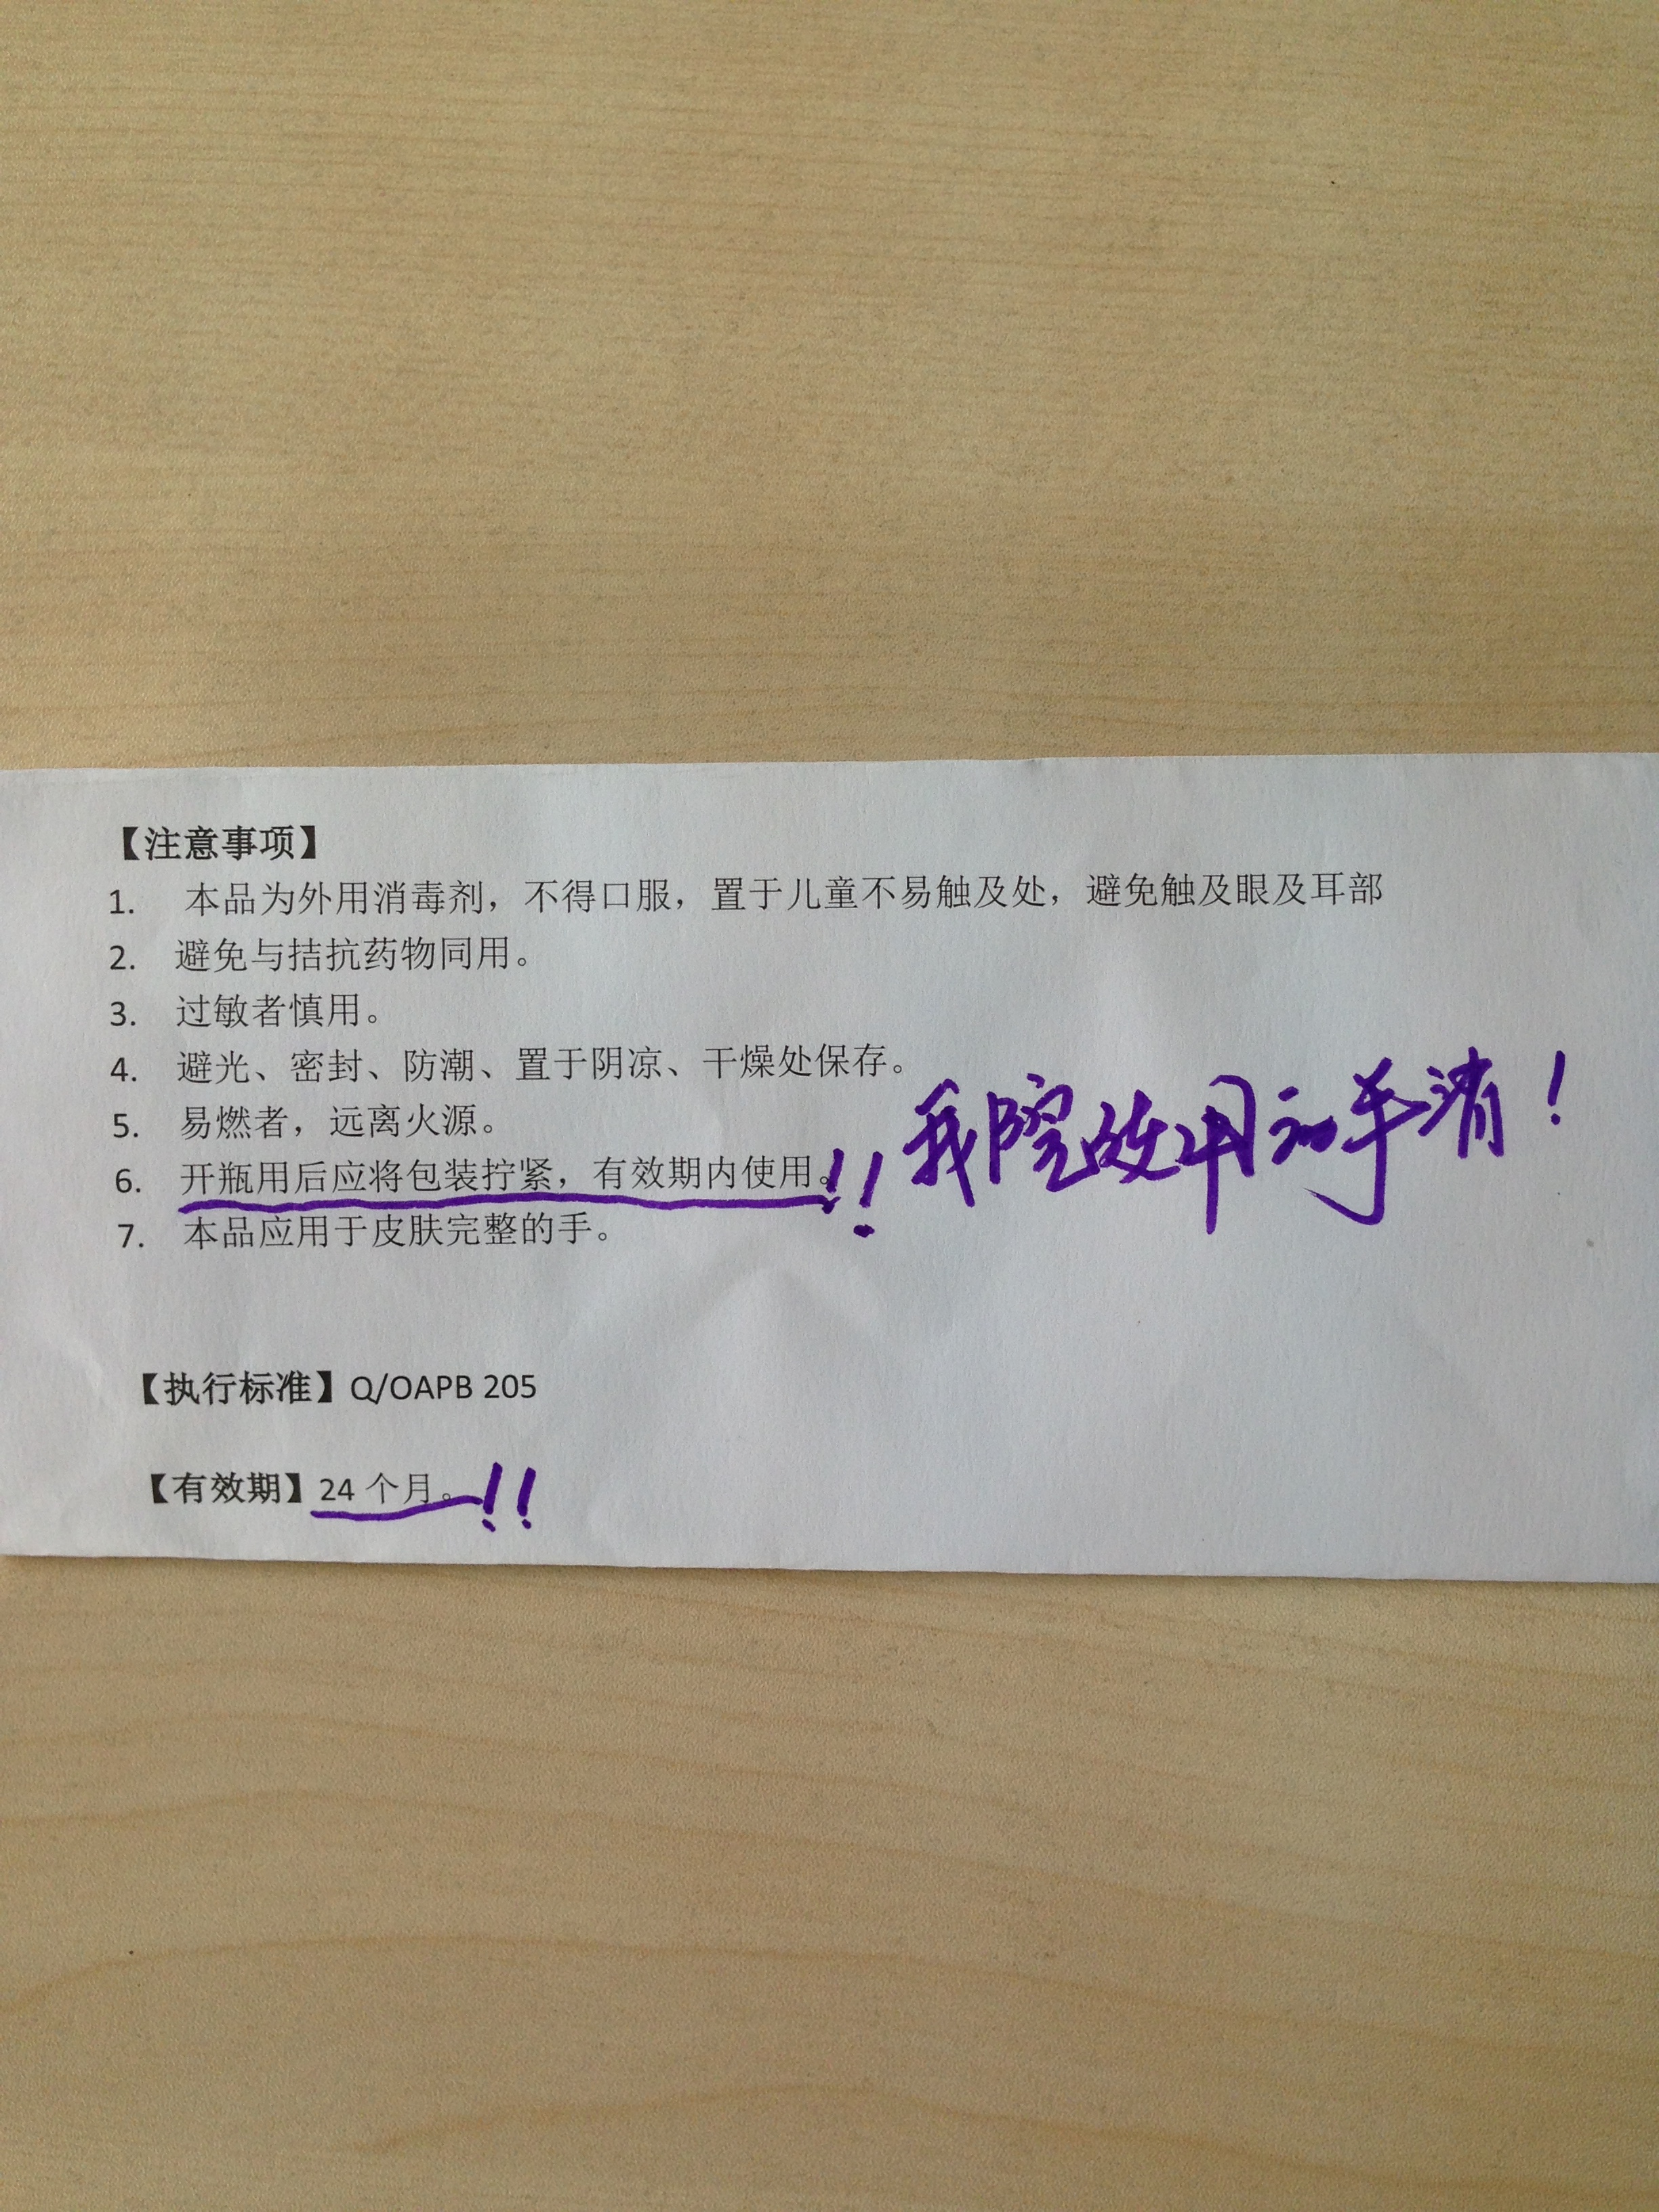 【注意事项】
1. 本品为外用消毒剂，不得口服，置于儿童不易触及处，避免触及眼及耳部
2. 避免与拮抗药物同用。
3. 过敏者慎用。
4. 避光、密封、防潮、置于阴凉、干燥处保存。
5. 易燃者，远离火源。
6. 开瓶用后应将包装拧紧，有效期内使用。!! 我院改用的手消！
7. 本品应用于皮肤完整的手。
【执行标准】Q/OAPB 205
【有效期】24 个月。!!